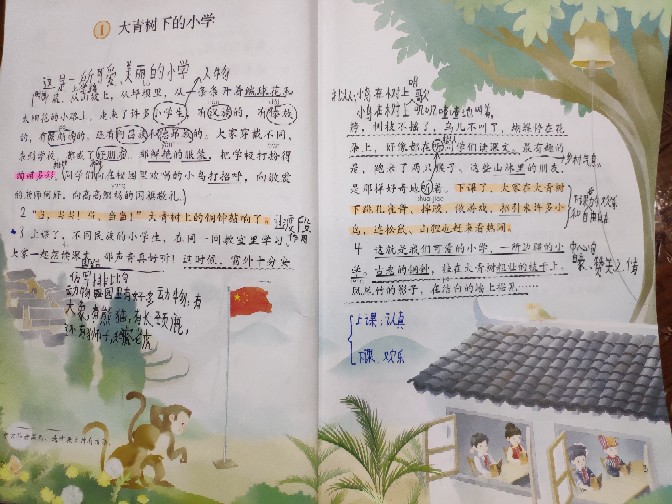 1 大青树下的小学
这是一所可爱、美丽的小学
人物
从山坡上，从坪坝里，从一条条开着绒球花和
太阳花的小路上，走来了许多小学生，有汉族的，有傣族
的，有景颇的，还有阿昌族和德昂族的。大家穿戴不同，
来到学校，都成了好朋友。那鲜艳的服装，把学校打扮得
绚丽多彩。同学们向在校园里欢唱的小鸟打招呼，向敬爱
的老师问好，向高高飘扬的国旗敬礼。
2 “当，当当！当，当当！”大青树上的铜钟敲响了。
过渡段
3 上课了，不同民族的小学生，在同一间教室里学习。
作用
大家一起朗读课文，那声音真好听！这时候，窗外十分安
仿写排比句
动物园里有好多动物，有
大象，有熊猫，有长颈鹿，
还有狮子，老虎
小鸟在树上唱歌
小鸟在树上叽叽喳喳地叫着。
静，树枝不摇了，鸟儿不叫了，蝴蝶停在花
朵上，好像都在听同学们读课文。最有趣的
是，跑来了两只猴子。这些山林里的朋友，
是那样好奇地听着。下课了，大家在大青树
下跳孔雀舞、摔跤、做游戏，招引来许多小
鸟，连松鼠、山狸也赶来看热闹。
4 这就是我们可爱的小学，一所边疆的小
学。古老的铜钟，挂在大青树粗壮的枝干上。
凤尾竹的影子，在洁白的墙上摇晃……
中心句
赞美之情
上课：认真
下课：欢乐